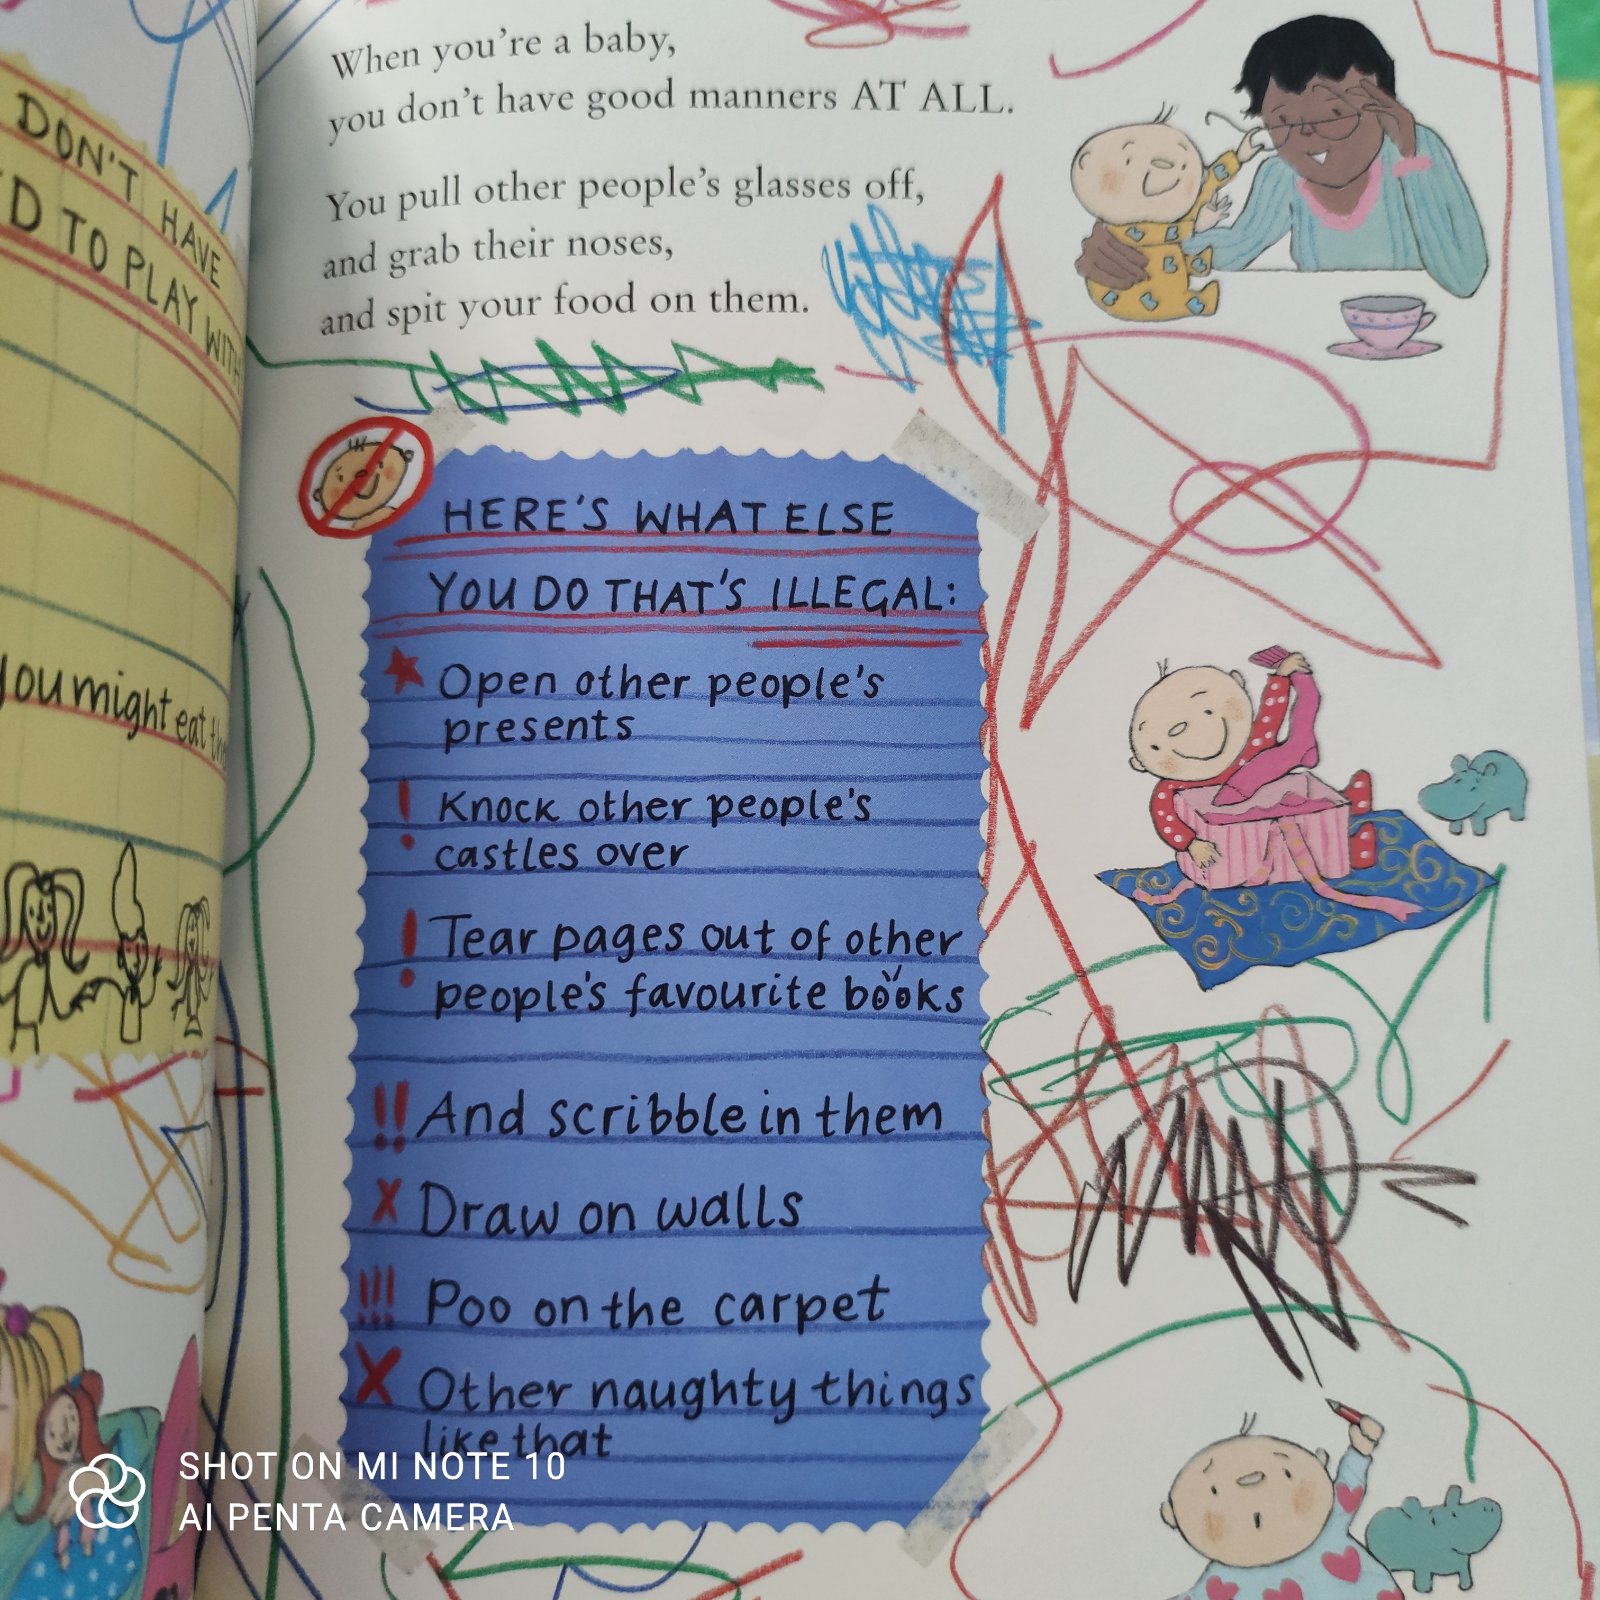 DON'T HAVE
TO PLAY WITH
you might eat
When you're a baby,
you don't have good manners AT ALL.
You pull other people's glasses off,
and grab their noses,
and spit your food on them.
HERE'S WHAT ELSE
YOU DO THAT'S ILLEGAL:
Open other people's
presents
! Knock other people's
castles over
! Tear pages out of other
people's favourite books
!! And scribble in them
x Draw on walls
!!! Poo on the carpet
X Other naughty things
like that
SHOT ON MI NOTE 10
AI PENTA CAMERA